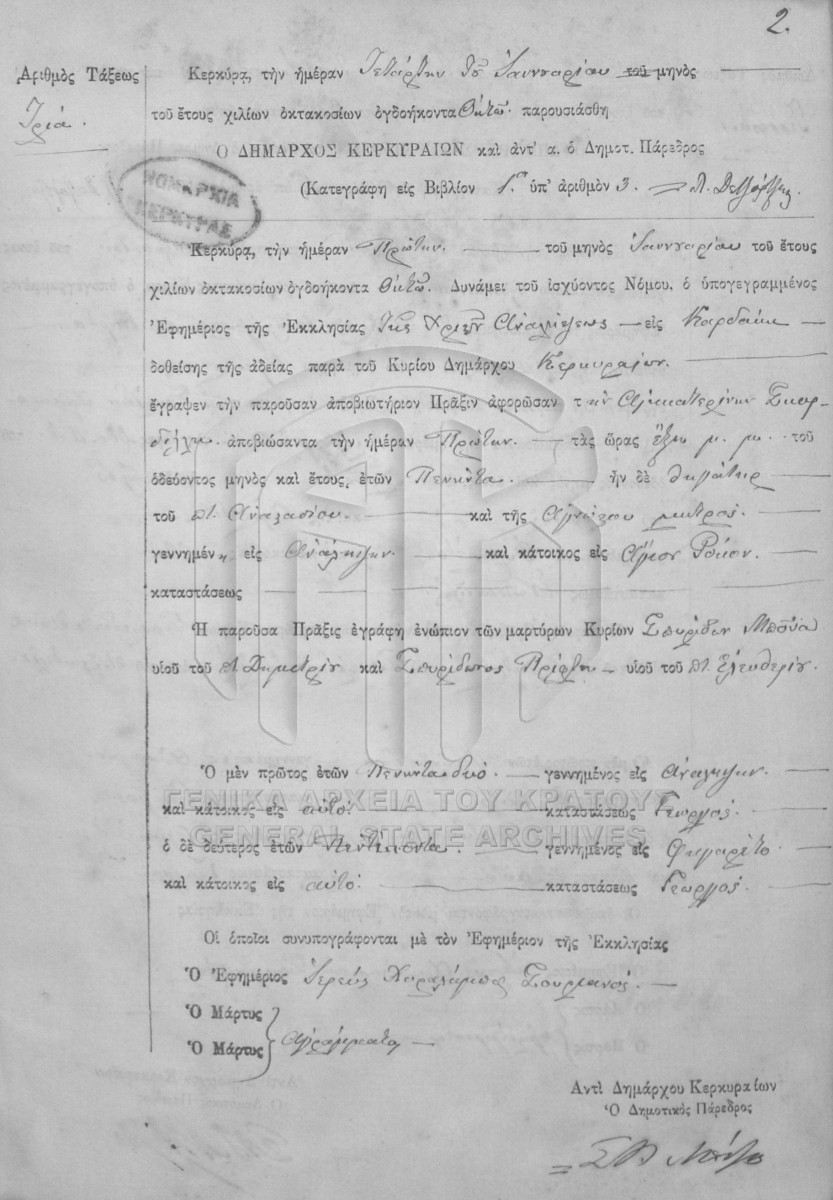 2.
Ἀριθμὸς Τάξεως
Τρία.
ΝΟΜΑΡΧΙΑ
ΚΕΡΚΥΡΑΣ
Κερκύρᾳ, τὴν ἡμέραν Τετάρτην τοῦ Ἰαννουαρίου τοῦ μηνὸς
τοῦ ἔτους χιλίων ὀκτακοσίων ὀγδοήκοντα ὀκτὼ. παρουσιάσθη
Ὁ ΔΗΜΑΡΧΟΣ ΚΕΡΚΥΡΑΙΩΝ καὶ ἀντ' α. ὁ Δημοτ. Πάρεδρος
(Κατεγράφη εἰς Βιβλίον ὑπ' ἀριθμὸν 3.
Κερκύρᾳ, τὴν ἡμέραν Πρώτην. τοῦ μηνὸς Ἰαννουαρίου τοῦ ἔτους
χιλίων ὀκτακοσίων ὀγδοήκοντα ὀκτὼ. Δυνάμει τοῦ ἰσχύοντος Νόμου, ὁ ὑπογεγραμμένος
Ἐφημέριος τῆς Ἐκκλησίας τῆς Ἀναλήψεως εἰς
δοθείσης τῆς ἀδείας παρὰ τοῦ Κυρίου Δημάρχου Κερκυραίων.
ἔγραψεν τὴν παροῦσαν ἀποβιωτήριον Πρᾶξιν ἀφορῶσαν τ ην Αἰκατερίνην
ἀποβιώσαντα τὴν ἡμέραν Πρώτην. τὰς ὥρας ἕξω μ. μ. τοῦ
ὁδεύοντος μηνὸς καὶ ἔτους, ἐτῶν Πενῆντα. ἦν δὲ θυγάτηρ
τοῦ π. Ἀναστασίου. καὶ τῆς ἀγνώστου μητρός.
γεννημέν η εἰς Ἀνάληψιν. καὶ κάτοικος εἰς Ἅγιον Ρόκον.
καταστάσεως
Ἡ παροῦσα Πρᾶξις ἐγράφη ἐνώπιον τῶν μαρτύρων Κυρίων Σπυρίδων Μπούα
υἱοῦ τοῦ π. Δημητρίου καὶ Σπυρίδωνος Πρίφτου υἱοῦ τοῦ π. Ἐλευθερίου.
Ὁ μὲν πρῶτος ἐτῶν Πενῆντα δυό. γεννημένος εἰς Ἀνάληψιν.
καὶ κάτοικος εἰς αὐτό. καταστάσεως Γεωργός.
ὁ δὲ δεύτερος ἐτῶν Πεντήκοντα. γεννημένος εἰς Φιγαρέτο
καὶ κάτοικος εἰς αὐτό. καταστάσεως Γεωργός.
Οἱ ὁποῖοι συνυπογράφονται μὲ τὸν Ἐφημέριον τῆς Ἐκκλησίας
Ὁ Ἐφημέριος Ἱερεὺς Χαράλαμπος Σουρμανός.
Ὁ Μάρτυς
Ὁ Μάρτυς } Ἀγράμματοι
Ἀντὶ Δημάρχου Κερκυραίων
Ὁ Δημοτικὸς Πάρεδρος
ΓΕΝΙΚΑ ΑΡΧΕΙΑ ΤΟΥ ΚΡΑΤΟΥΣ
GENERAL STATE ARCHIVES